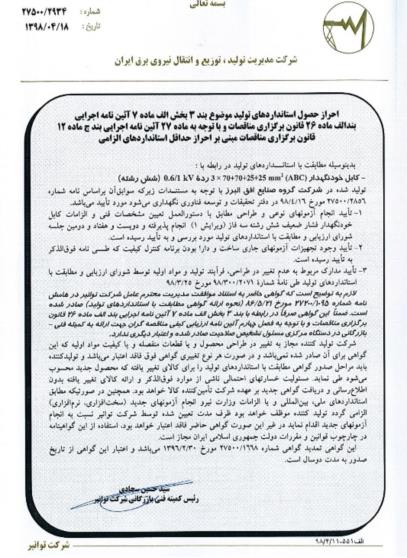 بسمه تعالی
شماره : ۲۷۵۰۰/۲۹۳۴
تاریخ : ۱۳۹۸/۰۴/۱۸
شرکت مدیریت تولید ، توزیع و انتقال نیروی برق ایران
احراز حصول استانداردهای تولید موضوع بند ۳ بخش الف ماده ۷ آئین نامه اجرایی
بندالف ماده ۲۶ قانون برگزاری مناقصات و با توجه به ماده ۲۷ آئین نامه اجرایی بند ج ماده ۱۲
قانون برگزاری مناقصات مبنی بر احراز حداقل استانداردهای الزامی
بدینوسیله مطابقت با استانـداردهای تولید در رابطه با :
- کابل خودنگهدار (ABC) 3 × 70+70+25+25 mm² ردۀ 0.6/1 kV (شش رشته)
تولید شده در شرکت گروه صنایع افق البرز با توجه به مستندات زیرکه سوابق‌آن براساس نامه شماره
۲۷۵۰۰/۲۸۵۶ مورخ ۹۸/۴/۱۶ در دفتر تحقیقات و توسعه فناوری نگهداری می‌شود مورد تأیید می‌باشد.
۱- تأیید انجام آزمونهای نوعی و طراحی مطابق با دستورالعمل تعیین مشخصات فنی و الزامات کابل
خودنگهدار فشار ضعیف شش رشته سه فاز (ویرایش ۱) انجام پذیرفته و دویست و هفتاد و دومین جلسه
شورای ارزیابی و مطابقت با استانداردهای تولید مورد بررسی و به تأیید رسیده است.
۲- تأیید وجود تجهیزات آزمونهای جاری ساخت و دارا بودن برنامه کنترل کیفیت که طی نامه فوق‌الذکر
به تأیید رسیده است.
۳- تأیید مدارک مربوط به عدم تغییر در طراحی، فرآیند تولید و مواد اولیه توسط شورای ارزیابی و مطابقت با
استانداردهای تولید طی نامۀ شمارۀ ۹۸/۳۰۰/۲۰۷۱ مورخ ۹۸/۳/۲۵
لازم به توضیح است که گواهی حاضر به استناد موافقت مدیریت محترم عامل شرکت توانیر در هامش
نامه شماره ۲۷۲۰۰/۱۰۹۵ مورخ ۸۷/۵/۲۱ (نحوه ارائه گواهی مطابقت با استانداردهای تولید) صادر شده
است. ضمناً این گواهی صرفاً در رابطه با بند ۳ بخش الف ماده ۷ آئین نامه اجرایی بند الف ماده ۲۶ قانون
برگزاری مناقصات و با توجه به فصل چهارم آئین نامه ارزیابی کیفی مناقصه گران جهت ارائه به کمیته فنی -
بازرگانی در دستگاه مرکزی مسئول تشخیص صلاحیت صادر شده و اعتبار دیگری ندارد.
شرکت تولید کننده مجاز به تغییر در طراحی محصول و یا قطعات منفصله و یا کیفیت مواد اولیه که این
گواهی برای آن صادر شده نمی‌باشد و در صورت هر نوع تغییری گواهی فوق فاقد اعتبار می‌باشد و تولیدکننده
باید مراحل صدور گواهی مطابقت با استانداردهای تولید را برای کالای تغییر یافته که محصول جدید محسوب
می‌شود طی نماید. مسئولیت خسارتهای احتمالی ناشی از موارد فوق‌الذکر و ارائه کالای تغییر یافته بدون
اطلاع‌رسانی و دریافت گواهی جدید بر عهده شرکت تأمین‌کننده کالا خواهد بود. همچنین در صورتیکه مطابق
استانداردهای ملی، بین‌المللی و یا الزامات وزارت نیرو انجام آزمونهای جدید (سخت‌افزاری، نرم‌افزاری)
الزامی گردد تولید کننده موظف خواهد بود ظرف مدت تعیین شده توسط شرکت توانیر نسبت به انجام
آزمونهای جدید اقدام نماید در غیر این صورت گواهی حاضر فاقد اعتبار خواهد بود، استفاده از این گواهینامه
در چارچوب قوانین و مقررات دولت جمهوری اسلامی ایران مجاز است.
این گواهی تمدید گواهی شماره ۲۷۵۰۰/۱۶۶۸ مورخ ۱۳۹۶/۲/۳۰ می‌باشد و اعتبار این گواهی از تاریخ
صدور به مدت دوسال است.
سید حسن سجادی
رئیس کمیته فنی بازرگانی شرکت توانیر
شرکت توانیر
الف۵۵۱-۹۸/۴/۱۱